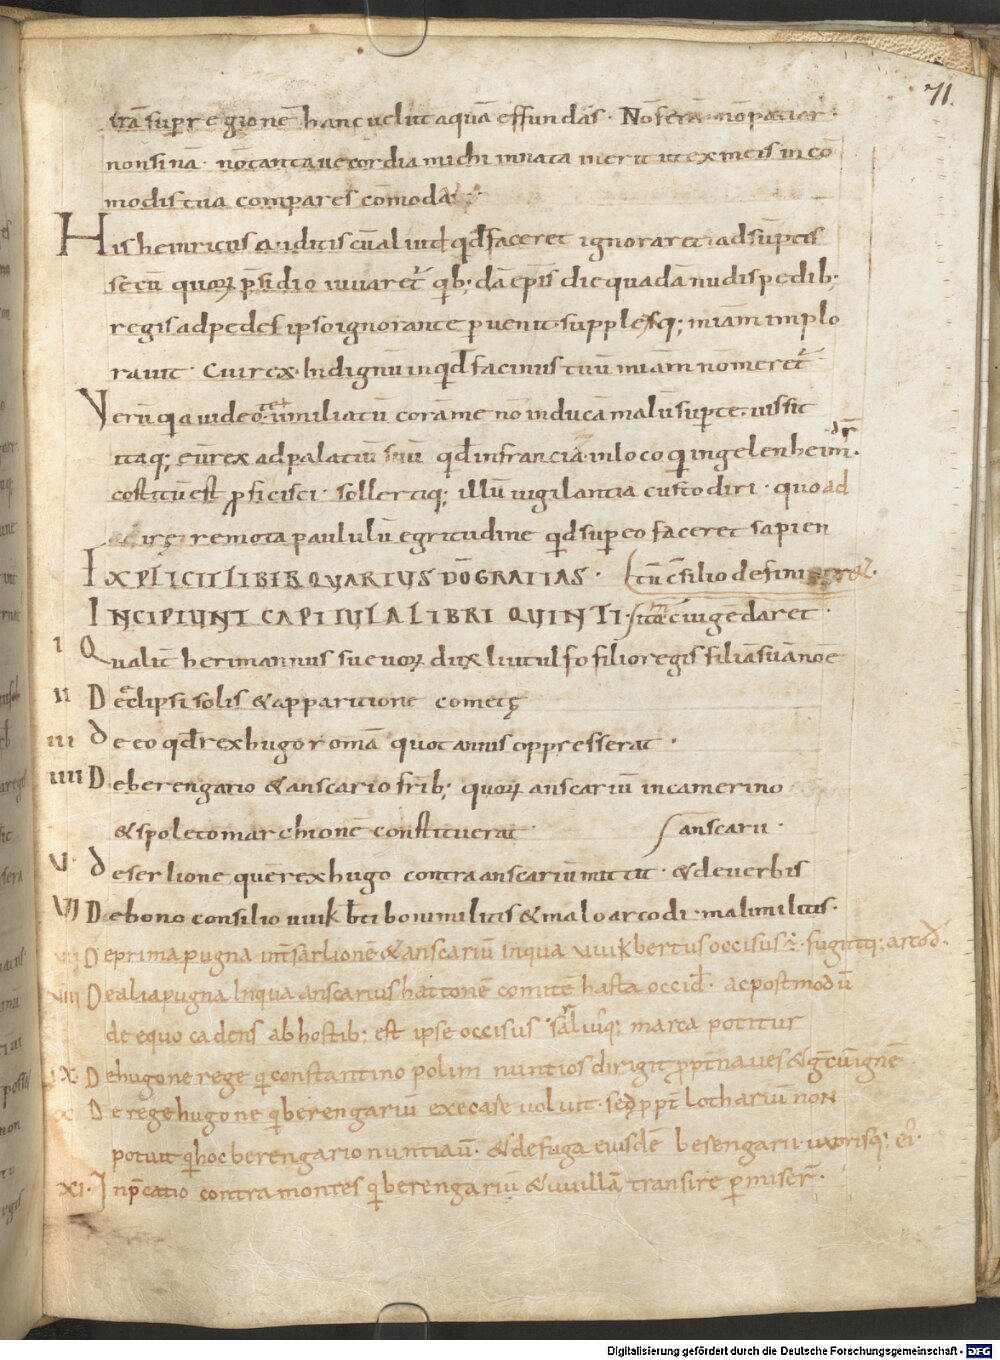 71.
irā sup̄ regionē hanc uelut aquā effundas. Nō ferā nō patiar.
non sinā. nō tanta uecordia michi innata inerit ut ex meis incō
modis tua compares cōmoda
His heinricus auditis cū aliud qd̄ faceret ignoraret adsūptis
secū quoꝝ p̄sidio iuuaret᷑ qb; dā ep̄is die quadā nudis pedib;
regis ad pedes ipso ignorante peruenit supplexq; miām implo
rauit. Cui rex. Indignū inqd̄ facinus tuū miām nō meret᷑
Verū qia uideo te umiliatū corā me nō inducā malū sup te. iussit
itaq; eū rex ad palatiū suū qd̄ in francia in loco qi ingelenheim dr̄
cōstitutū est proficisci. sollertiq; illū uigilantia custodiri. quoad
irę remota paululū egritudine qd̄ sup eo faceret sapien
EXPLICIT LIBER QVARTVS DŌ GRATIAS. tū c̄silio definiret᷑.
INCIPIUNT CAPITULA LIBRI QUINTI. suā c̄iugē daret.
I Qualit̄ herimannus sueuoꝝ dux liutulfo filio regis filiā suā nōe
II De eclipsi solis & apparitione cometę
III De eo qd̄ rex hugo romā quot annis oppresserat.
IIII De berengario & anscario frīb; quoꝝ anscariū in camerino
& spoleto marchionē constituerat. anscarii.
V. De serlione quē rex hugo contra anscariū mittit. & de uerbis
VI De bono consilio uuikb̄ti boni militis & malo arcodi. mali militis.
VII De prima pugna int̄ sarlionē & anscariū in qua uuikbertus occisus ē. fugitq; arcod.
VIII De alia pugna in qua anscarius hattonē comitē hasta occid̄. ac postmodū
de equo cadens ab hostib; est ipse occisus sarliusq; marca potitus
IX. De hugone rege qi constantinopolim nuntios dirigit ꝓpt̄ naues & gr̄cū ignē
X De rege hugone qi berengariū execare uoluit. sed ꝓpt̄ lothariū non
potuit qi hoc berengario nuntiauit. & de fuga eiusdē berengarii. uxorisq; ei᷒.
XI. Inp̄catio contra montes qi berengariū & uuillā transire permiser̄.
Digitalisierung gefördert durch die Deutsche Forschungsgemeinschaft - DFG